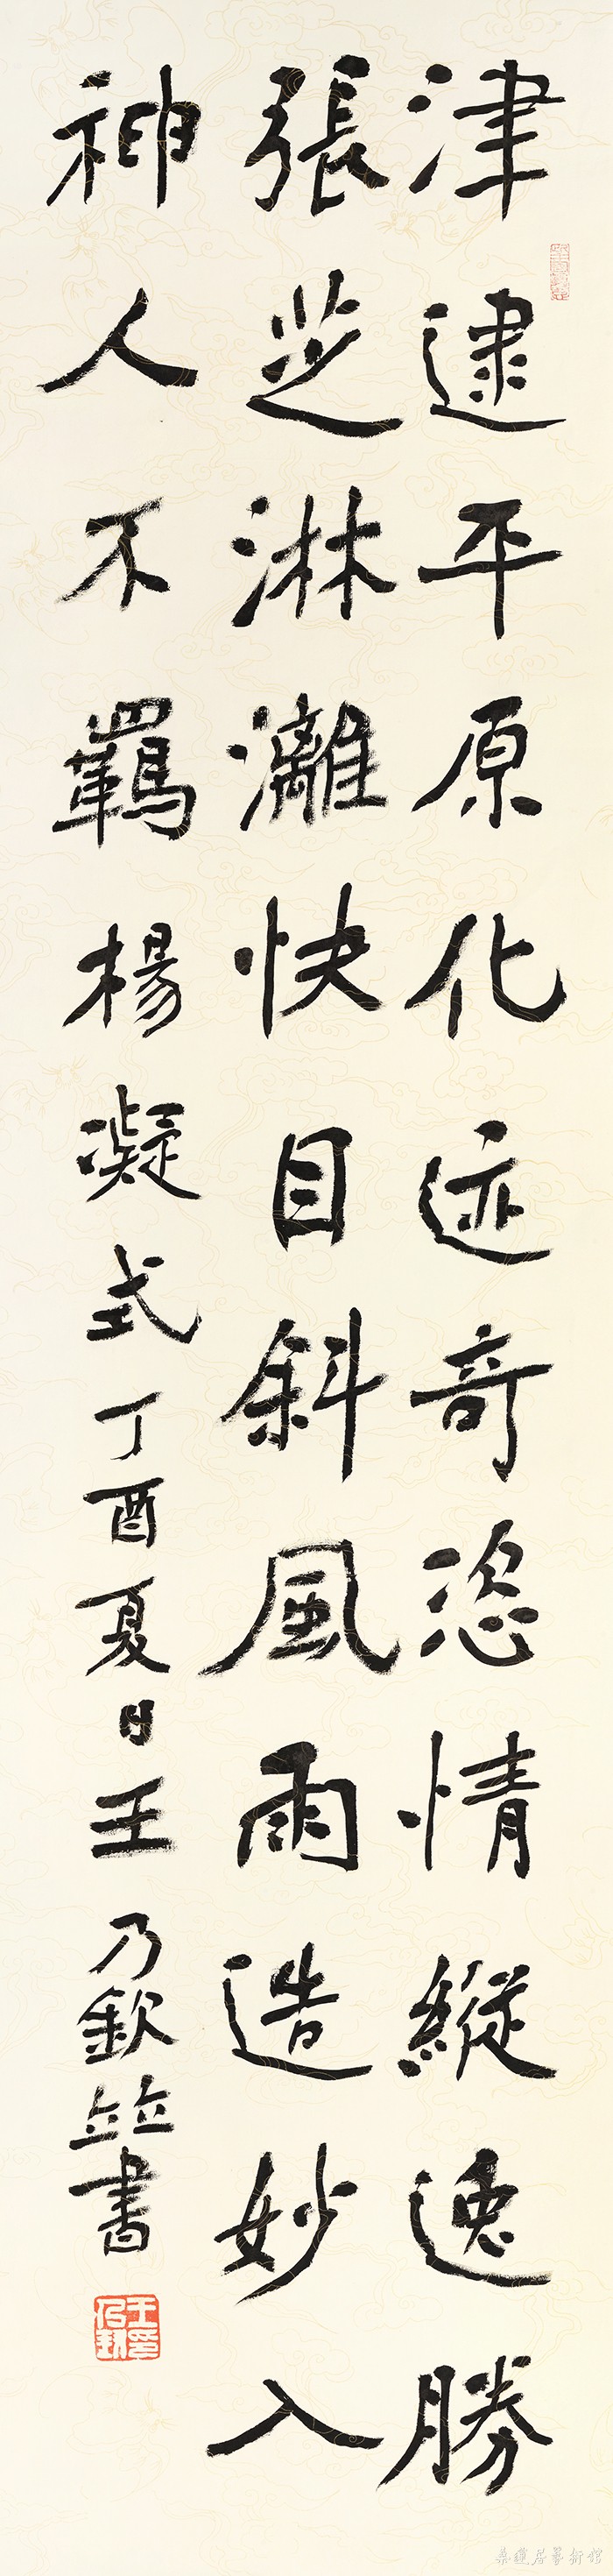 津逮平原化迹奇恣情縱逸勝
張芝淋灕快目斜風雨造妙入
神人不羈楊凝式丁酉夏日王乃欽並書
王乃欽印